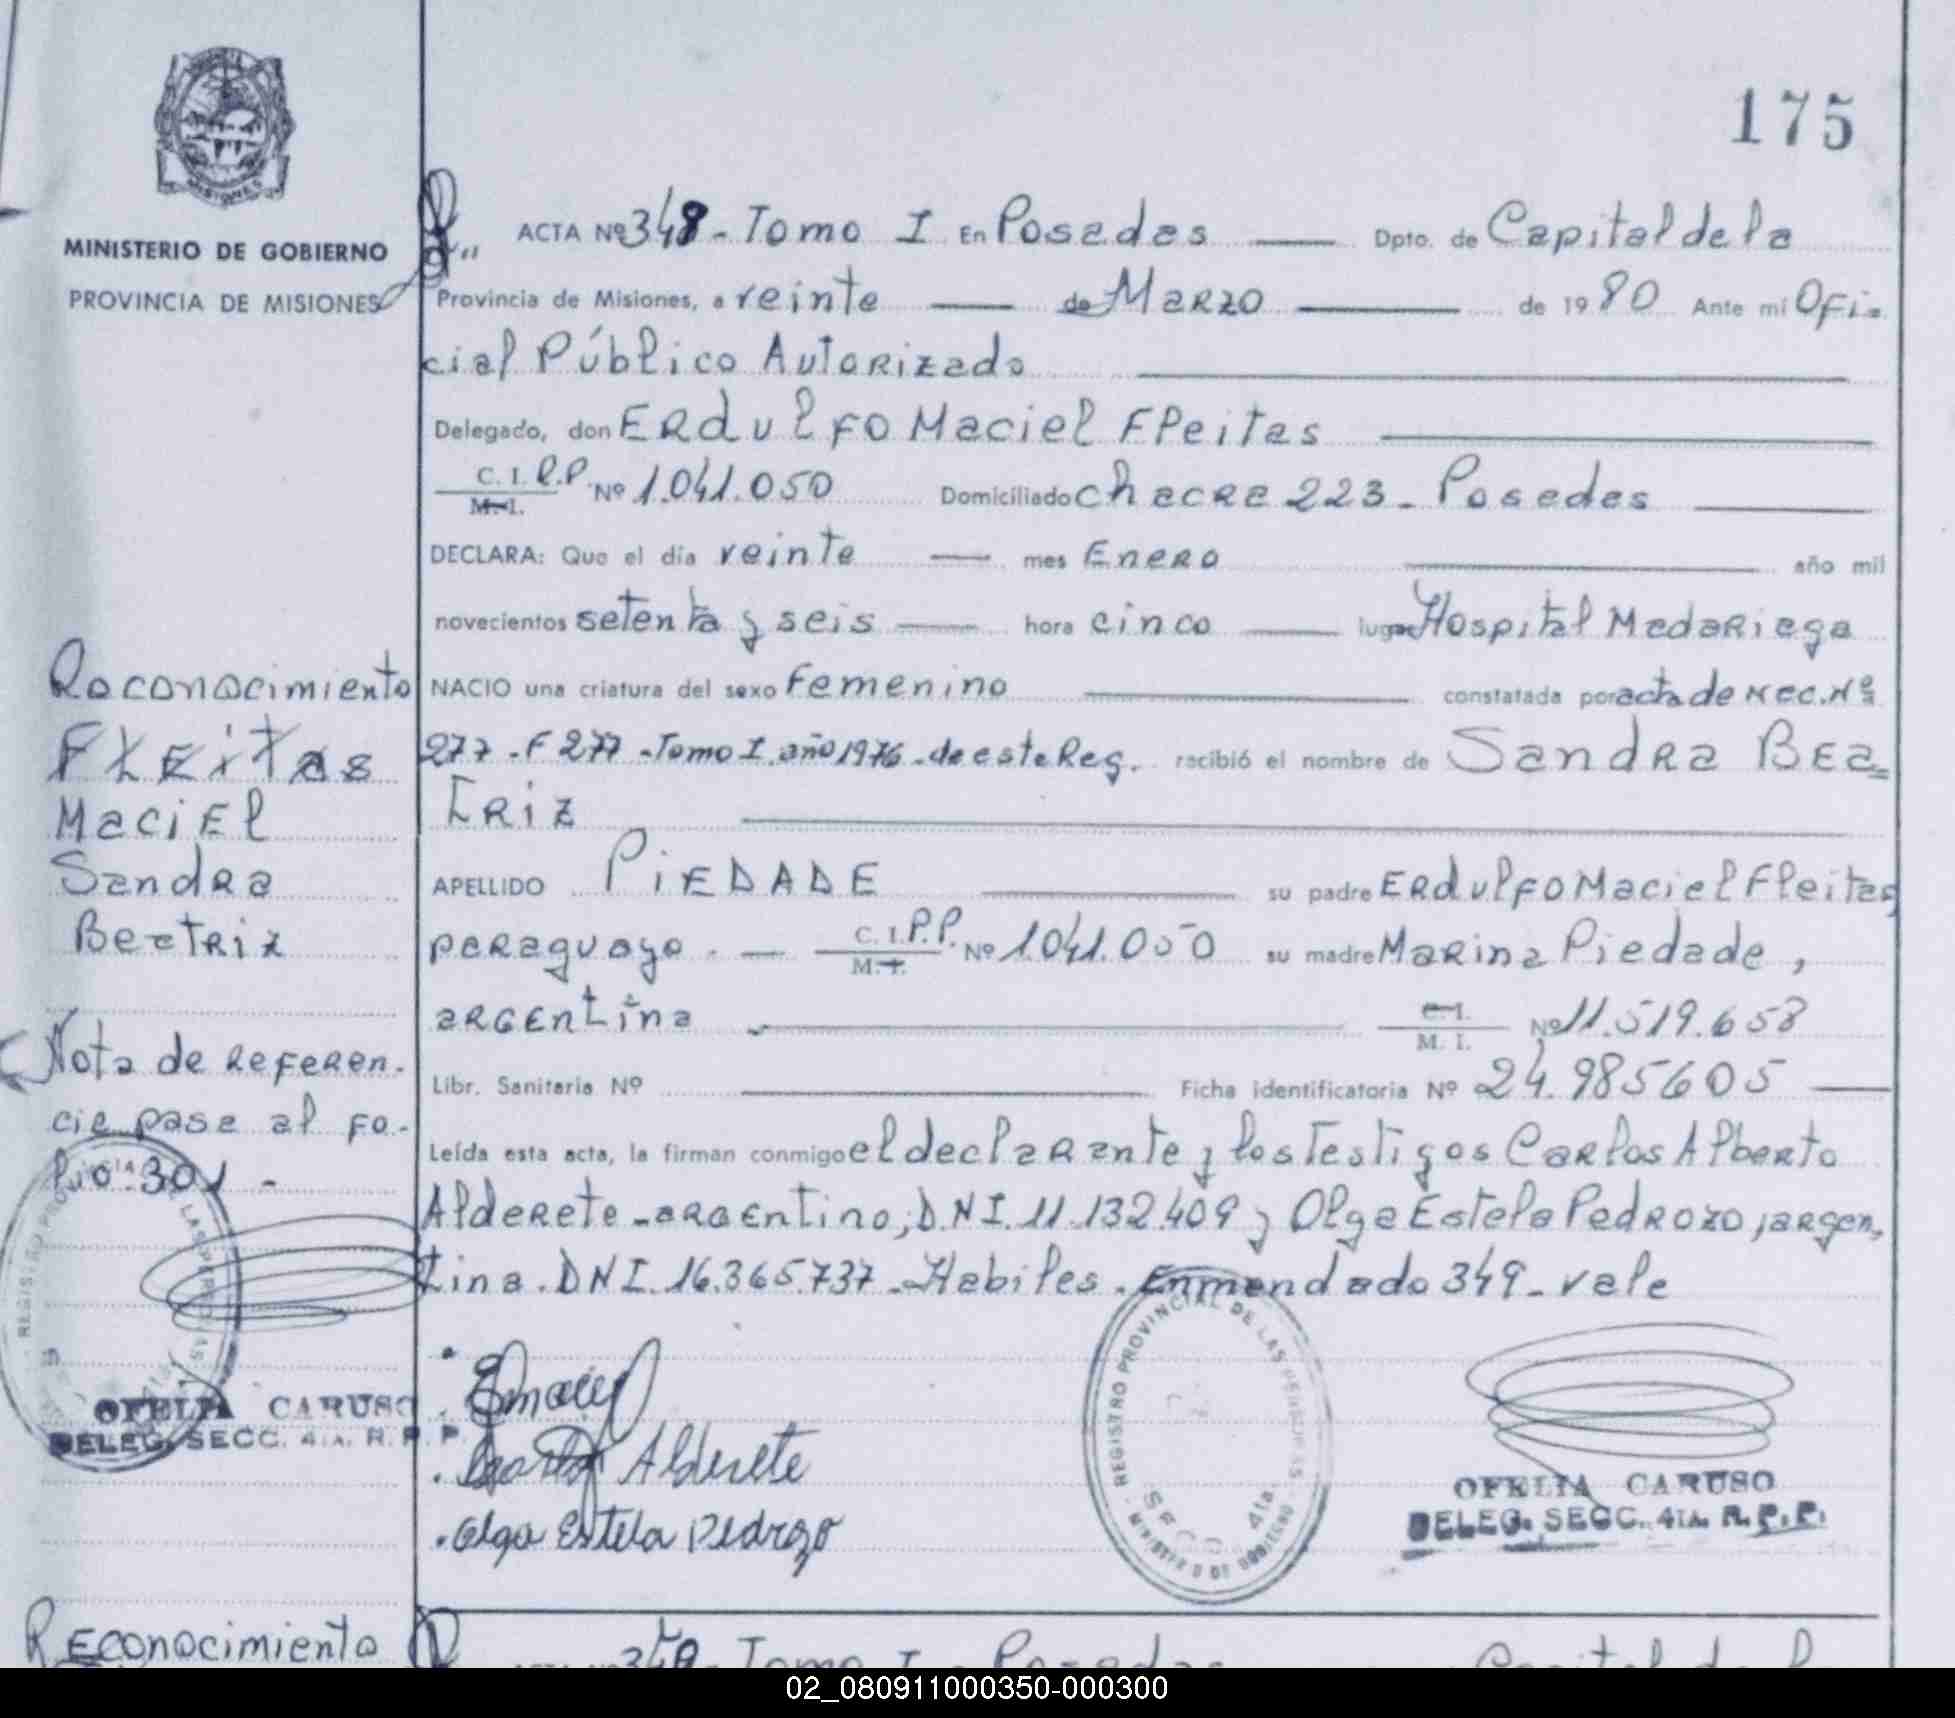 175
MISIONES
MINISTERIO DE GOBIERNO
PROVINCIA DE MISIONES
Reconocimiento
Fleitas
Maciel
Sandra
Beatriz
Nota de referen-
cia pase al fo-
lio 301 -
OFELIA CARUSO
DELEG. SECC. 4TA. R. P. P.
ACTA Nº 348 - Tomo I En Posadas Dpto. de Capital de la
Provincia de Misiones, a veinte de Marzo de 1980 Ante mí Ofi-
cial Público Autorizado
Delegado, don Erdulfo Maciel Fleitas
C. I. P.P. Nº 1.041.050 Domiciliado Chacra 223 - Posadas
M. I.
DECLARA: Que el día veinte mes Enero año mil
novecientos setenta y seis hora cinco lugar Hospital Madariaga
NACIO una criatura del sexo femenino constatada por acta de Nac. Nº
277 - F 277 - Tomo I. año 1976 - de este Reg. recibió el nombre de Sandra Bea=
triz
APELLIDO PIEDADE su padre Erdulfo Maciel Fleitas,
paraguayo. - C. I. P.P. Nº 1.041.050 su madre Marina Piedade,
M. I.
argentina - C. I. Nº 11.519.658
M. I.
Libr. Sanitaria Nº Ficha identificatoria Nº 24.985605
Leída esta acta, la firman conmigo el declarante y los Testigos Carlos Alberto
Alderete - argentino, D.N.I. 11.132.409 y Olga Estela Pedrozo, argen-
tina. DNI. 16.365.737 - Habiles. Enmendado 349 - vale
Alderete
Olga Estela Pedrozo
REGISTRO PROVINCIAL DE LAS PERSONAS
SECC. 4ta.
MINISTERIO DE GOBIERNO
OFELIA CARUSO
DELEG. SECC. 4TA. R. P. P.
Reconocimiento
Tomo I Posadas Capital de l
02_080911000350-000300